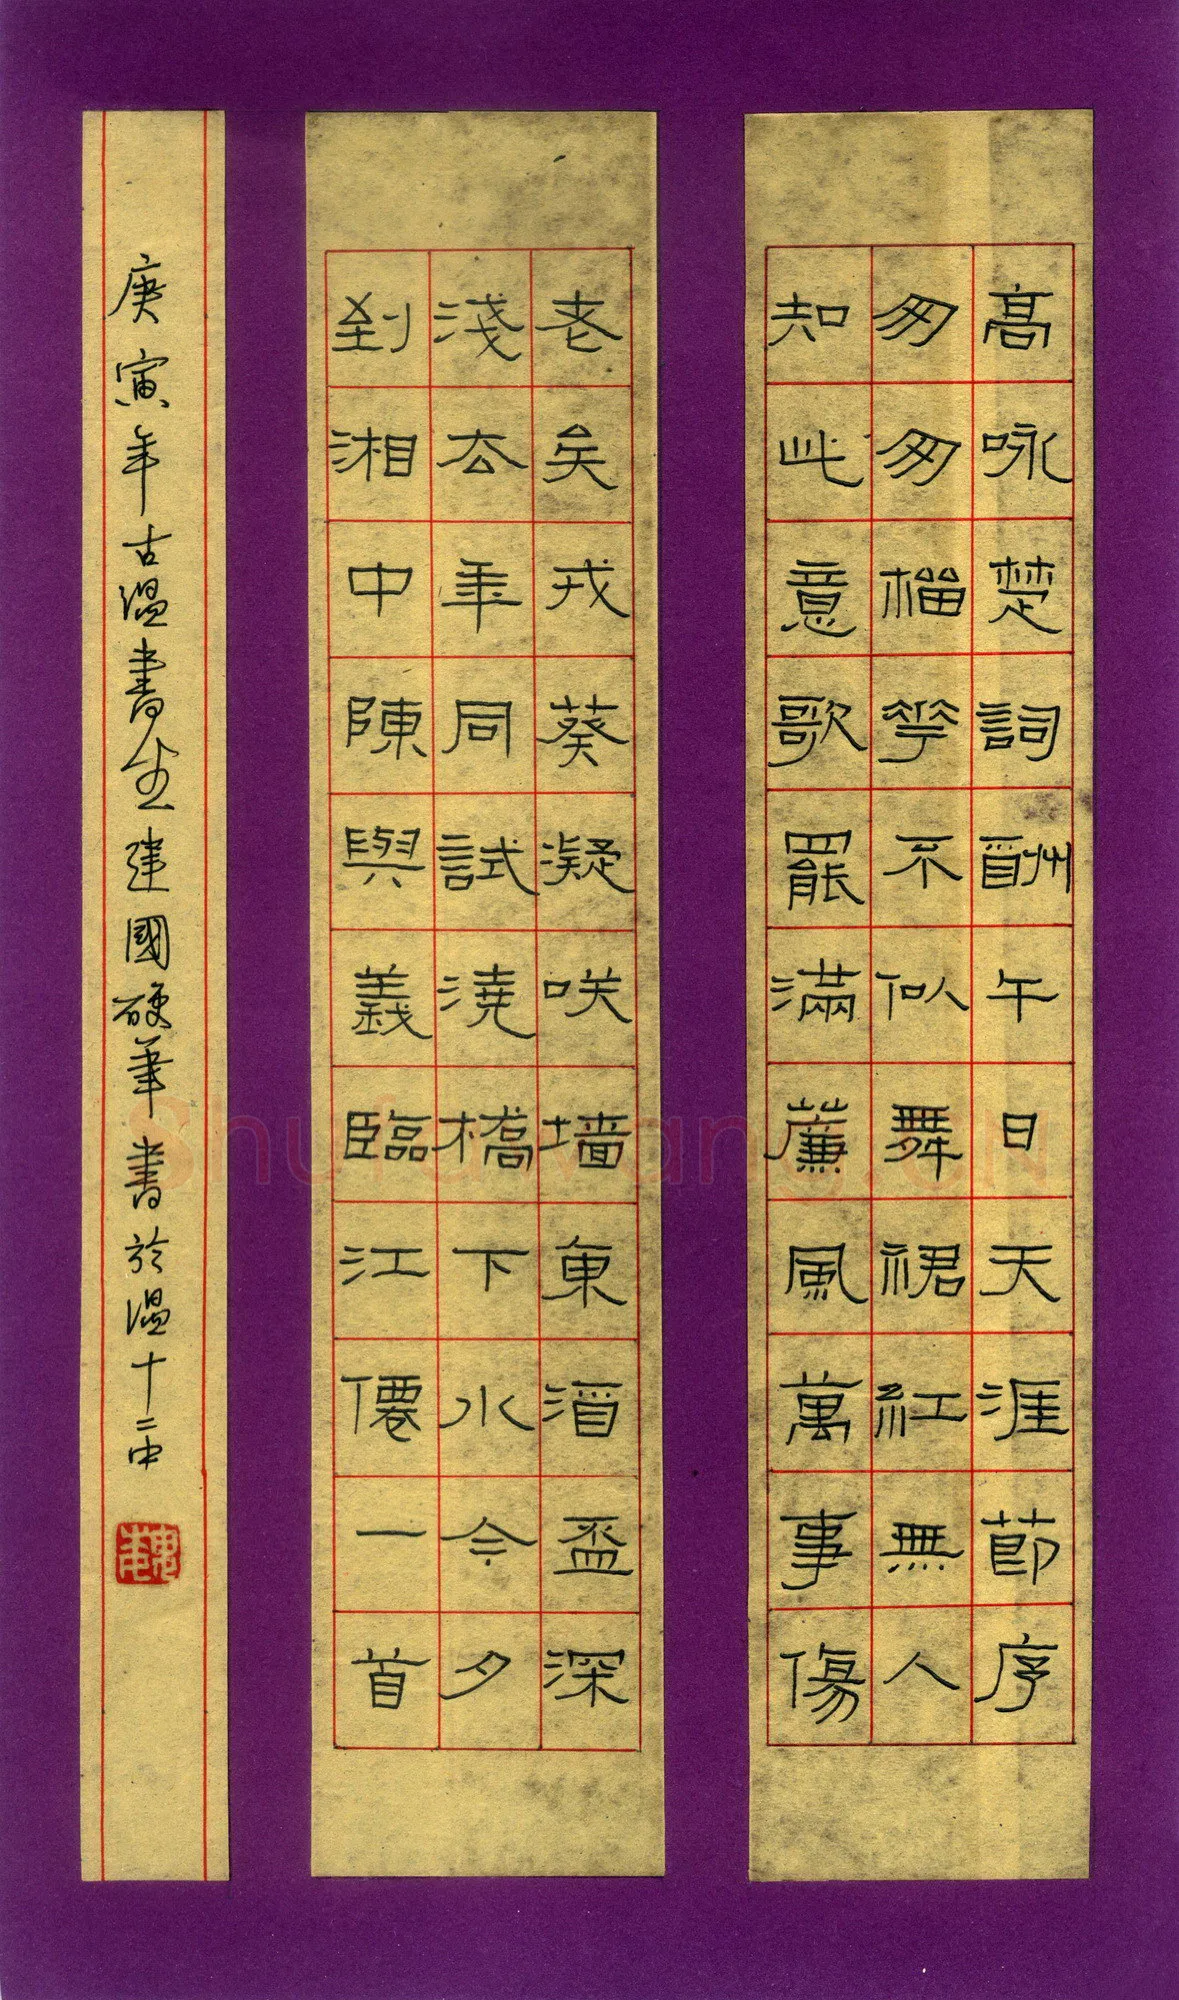 高咏楚詞酬午日天涯節序
匆匆榴花不似舞裙紅無人
知此意歌罷滿薕風萬事傷
老矣戎葵凝咲墙東酒盃深
淺去年同試澆橋下水今夕
到湘中陳與義臨江僊一首
庚寅年古溫書生建國硬筆書於溫十二中
Shufawang.CN